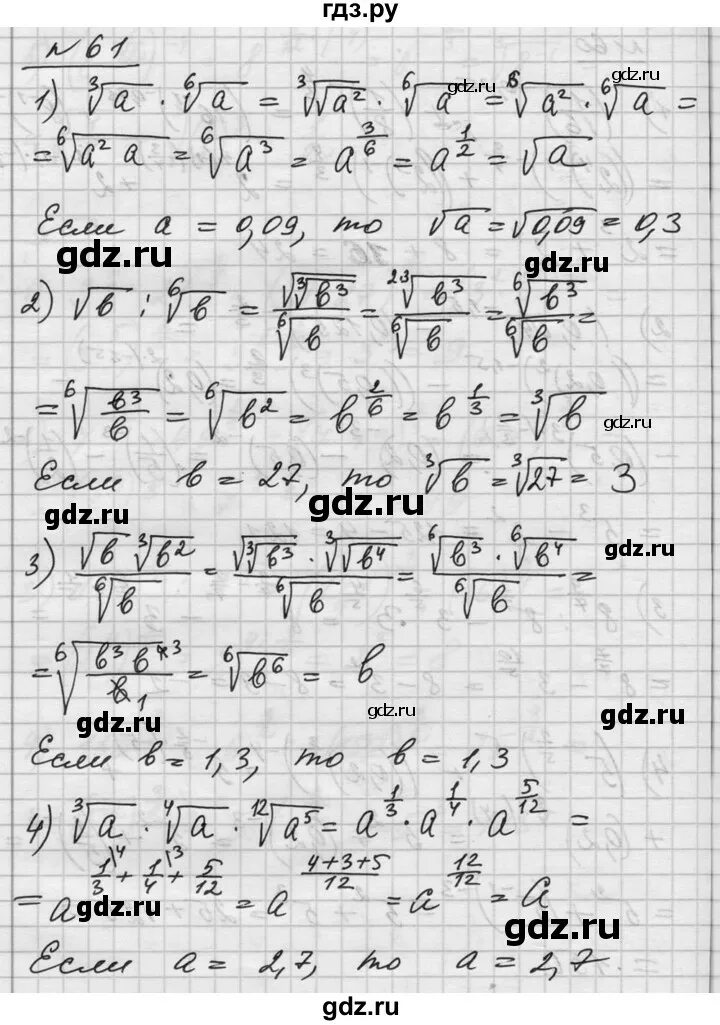 гдз.ру
№ 61
1) ∛a · ⁶√a = ∛√a² · ⁶√a = ⁶√a² · ⁶√a =
gdz.ru
gdz.ru
= ⁶√(a² a) = ⁶√a³ = a^(3/6) = a^(1/2) = √a
Если a = 0,09, то √a = √0,09 = 0,3
gdz.ru
gdz.ru
2) √b : ⁶√b = √∛b³ / ⁶√b = ²³√b³ / ⁶√b = ⁶√b³ / ⁶√b =
= ⁶√(b³/b) = ⁶√b² = b^(2/6) = b^(1/3) = ∛b
gdz.ru
Если b = 27, то ∛b = ∛27 = 3
gdz.ru
gdz.ru
3) √b ∛b² / ⁶√b = √∛b³ · ∛√b⁴ / ⁶√b = ⁶√b³ · ⁶√b⁴ / ⁶√b =
gdz.ru
= ⁶√(b³ b⁴ ³ / b 1) = ⁶√b⁶ = b
gdz.ru
gdz.ru
gdz.ru
Если b = 1,3, то b = 1,3
4) ∛a · ⁴√a · ¹²√a⁵ = a^(1/3) · a^(1/4) · a^(5/12) =
= a^(1/3\4 + 1/4\3 + 5/12) = a^((4+3+5)/12) = a^(12/12) = a
gdz.ru
Если a = 2,7, то a = 2,7.
gdz.ru
gdz.ru